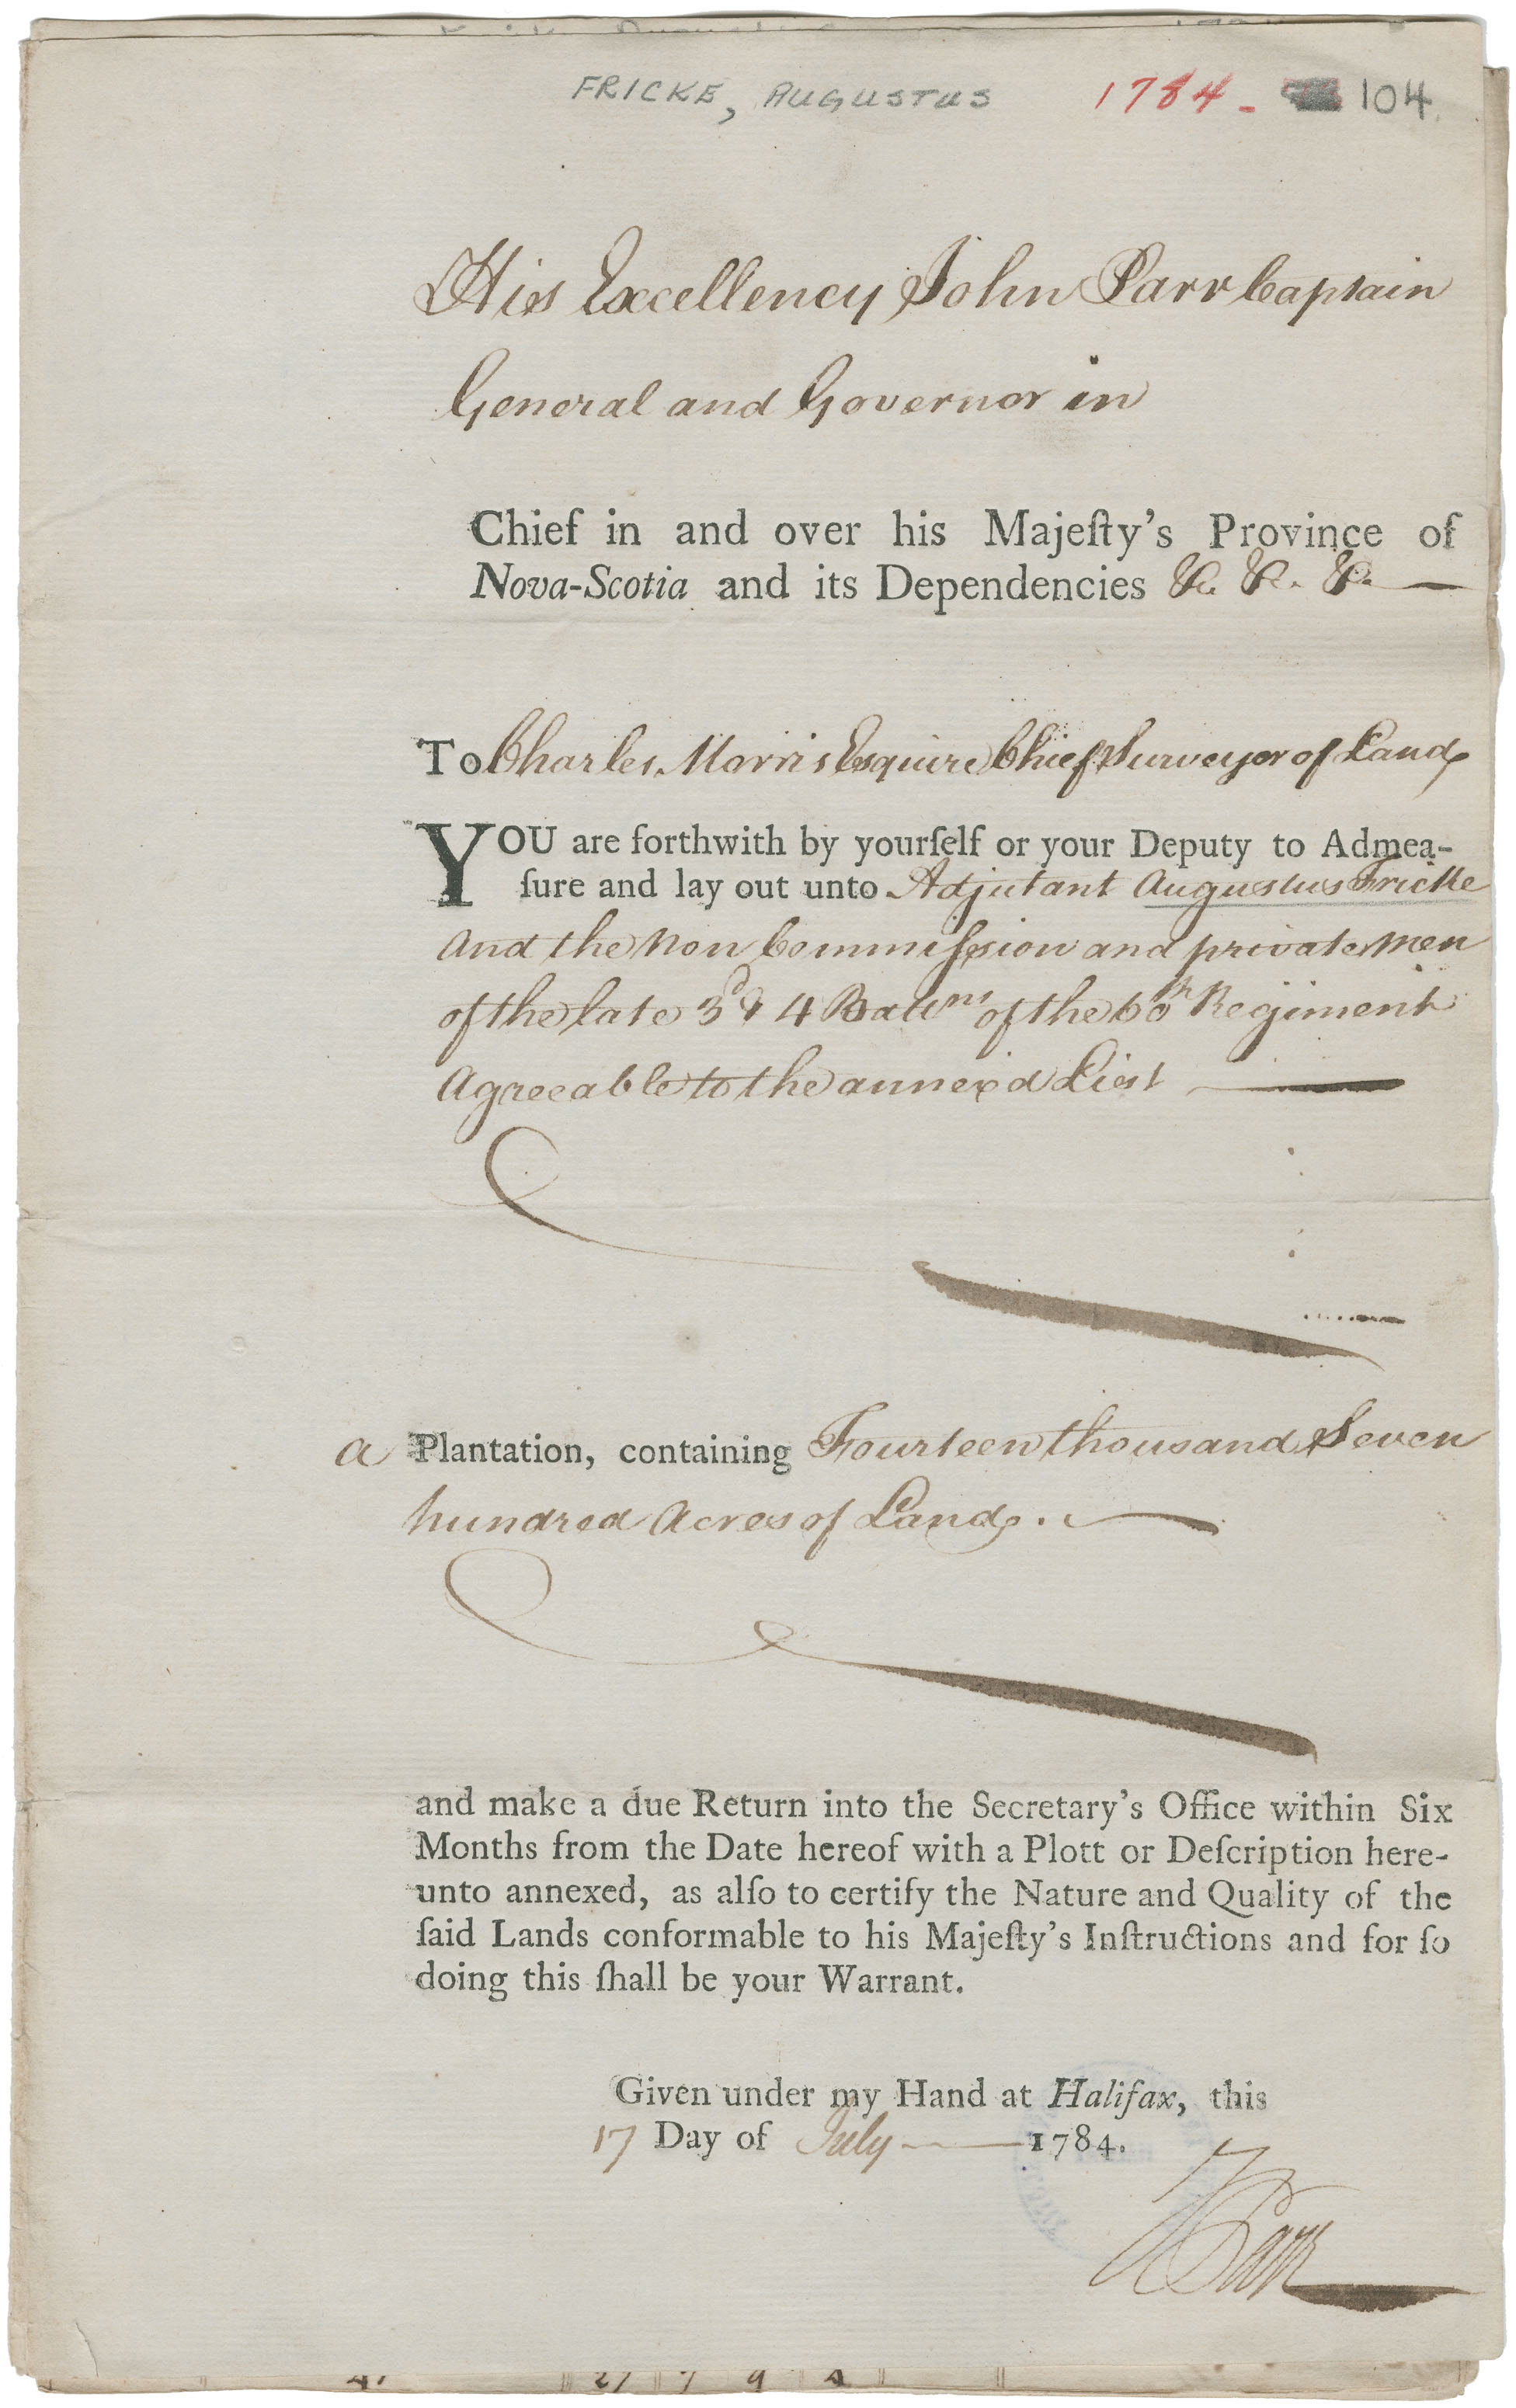 FRICKE, AUGUSTUS 1784- 104.
His Excellency John Parr Captain
General and Governor in
Chief in and over his Majeſty's Province of
Nova-Scotia and its Dependencies &c. &c. &c.
To Charles Morris Esquire Chief Surveyor of Lands
YOU are forthwith by yourſelf or your Deputy to Admea-
ſure and lay out unto Adjutant Augustus Fricke
and the Non Commiſsion and private Men
of the late 3d & 4 Battns of the 60th Regiment
Agreeable to the annex'd List
a Plantation, containing Fourteen thousand Seven
hundred Acres of Land.
and make a due Return into the Secretary's Office within Six
Months from the Date hereof with a Plott or Deſcription here-
unto annexed, as alſo to certify the Nature and Quality of the
ſaid Lands conformable to his Majeſty's Inſtructions and for ſo
doing this ſhall be your Warrant.
Given under my Hand at Halifax, this
17 Day of July 1784.
J Parr